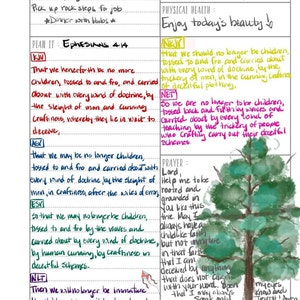 Pick up rock steps for job
*Dinner with
PHYSICAL HEALTH:
Enjoy today's beauty!
PLAN IT: Ephesians 4:14
KJV
That we henceforth be no more
children, tossed to and fro, and carried
about with every wind of doctrine, by
the sleight of men, and cunning
craftiness, whereby they lie in wait to
deceive.
ASV
that we may be no longer children,
tossed to and fro and carried about with
every wind of doctrine, by the sleight of
men, in craftiness, after the wiles of error;
ESV
so that we may no longer be children,
tossed to and fro by the waves and
carried about by every wind of doctrine,
by human cunning, by craftiness in
deceitful schemes.
NET
Then we will no longer be immature
that we should no longer be children,
tossed to and fro and carried about
with every wind of doctrine, by the
trickery of men, in the cunning craftiness
of deceitful plotting,
NET
So we are no longer to be children,
tossed back and forth by waves and
carried about by every wind of
teaching by the trickery of people
who craftily carry out their deceitful
schemes.
PRAYER:
Lord,
Help me to be
rooted and
grounded in
You like this
tree. May I
always have
childlike faith
but not immature
in that faith
that I am
deceived by anything
that does not
with your word.
that I may